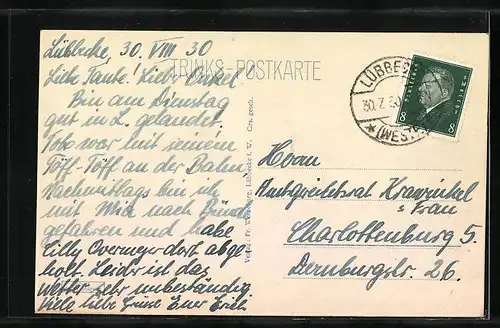 Lübbecke, 30. VIII 30
Liebe Tante! Lieber Onkel
TRINKS-POSTKARTE
Bin am Dienstag
gut in L. gelandet.
war mit seinem
Töff-Töff an der Bahn
Nachmittags bin ich
mit nach Bünde
gefahren und habe
Cilly Overmeyer dort abge
holt. Leider ist das
Wetter sehr unbeständig
Viele liebe Grüße Euer
Verlag Fr. Lübbecke i. W. Ges. gesch.
LÜBBEC
30.7.30
(WESTF
8 8
Herrn
Amtsgerichtsrat Krawinkel
u. Frau
Charlottenburg 5.
Dernburgstr. 26.